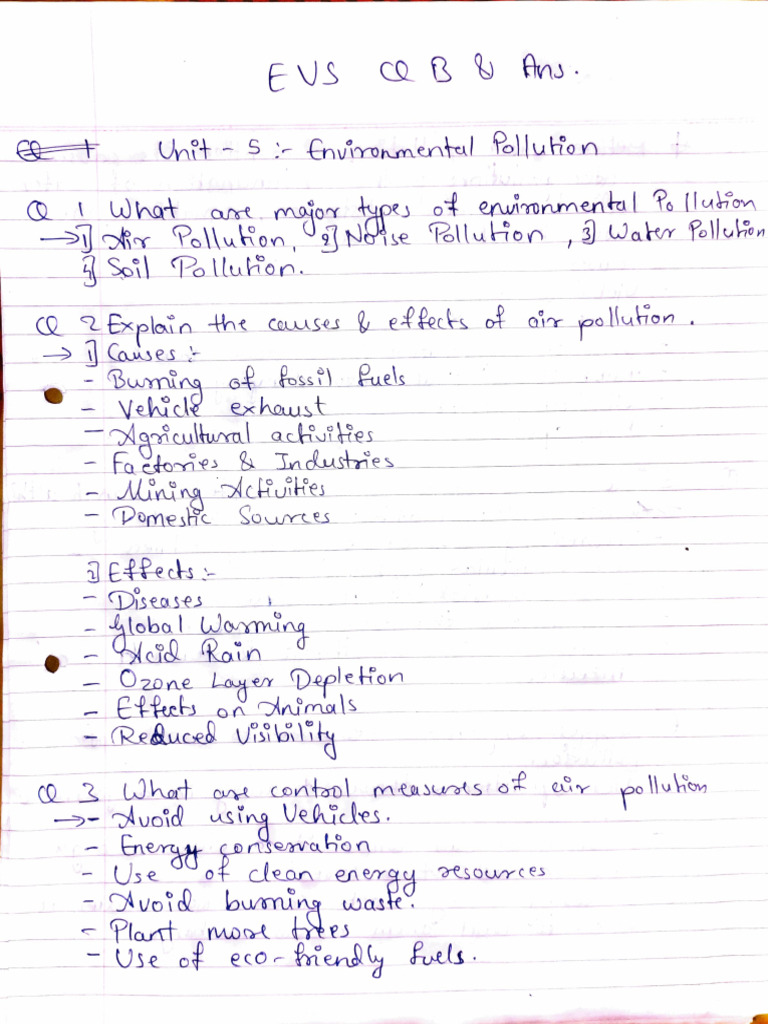 EVS QB & Ans.
Unit - 5 :- Environmental Pollution
Q 1 What are major types of environmental Pollution
→ 1] Air Pollution, 2] Noise Pollution, 3] Water Pollution
4] Soil Pollution.
Q 2 Explain the causes & effects of air pollution.
→ 1] Causes :-
- Burning of fossil fuels
- Vehicle exhaust
- Agricultural activities
- Factories & Industries
- Mining Activities
- Domestic Sources
2] Effects :-
- Diseases
- Global Warming
- Acid Rain
- Ozone Layer Depletion
- Effects on Animals
- Reduced Visibility
Q 3 What are control measures of air pollution
→ - Avoid using Vehicles.
- Energy conservation
- Use of clean energy resources
- Avoid burning waste.
- Plant more trees
- Use of eco-friendly fuels.